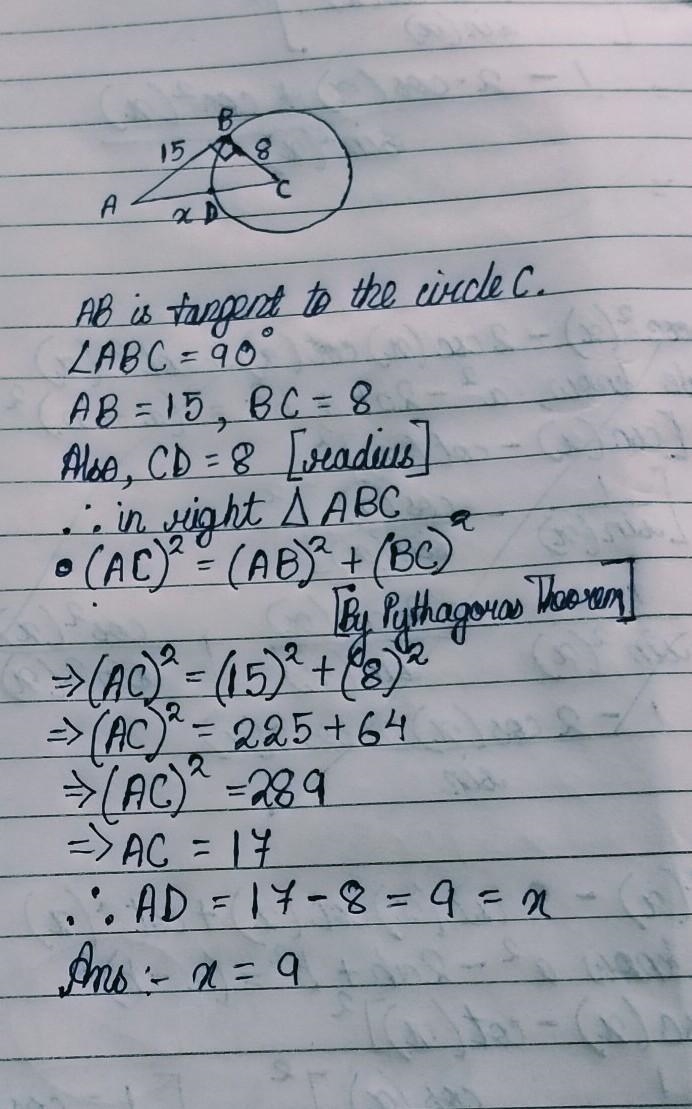 B
15 8
A x D C
AB is tangent to the circle C.
∠ABC = 90°
AB = 15, BC = 8
Also, CD = 8 [radius]
∴ in right △ ABC
• (AC)² = (AB)² + (BC)²
[By Pythagoras Theorem]
⇒ (AC)² = (15)² + (8)²
⇒ (AC)² = 225 + 64
⇒ (AC)² = 289
⇒ AC = 17
∴ AD = 17 - 8 = 9 = x
Ans :- x = 9